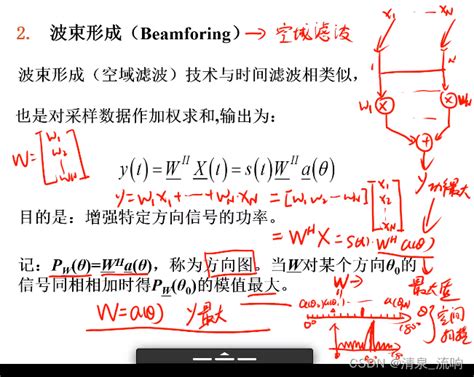 2. 波束形成（Beamforing）→ 空域滤波
波束形成（空域滤波）技术与时间滤波相类似,
也是对采样数据作加权求和,输出为:
W = [w₁ w₂ ⋮ w_N]
y(t) = W^H X(t) = s(t)W^H a(θ)
y = w₁x₁ + ⋯ + w_N x_N = [w₁ w₂ ⋯ w_N] [x₁ x₂ ⋮ x_N]
目的是：增强特定方向信号的功率。
= W^H X = s(t) · W^H a(θ)
记：P_W(θ)=W^H a(θ)，称为方向图。当W对某个方向θ₀的
信号同相相加时得P_W(θ₀)的模值最大。
W = a(θ) y最大
x₁ x_N
w₁ w_N
+
y
W→
最大值
空间
0° 180°
0° 180°
CSDN @清泉_流响